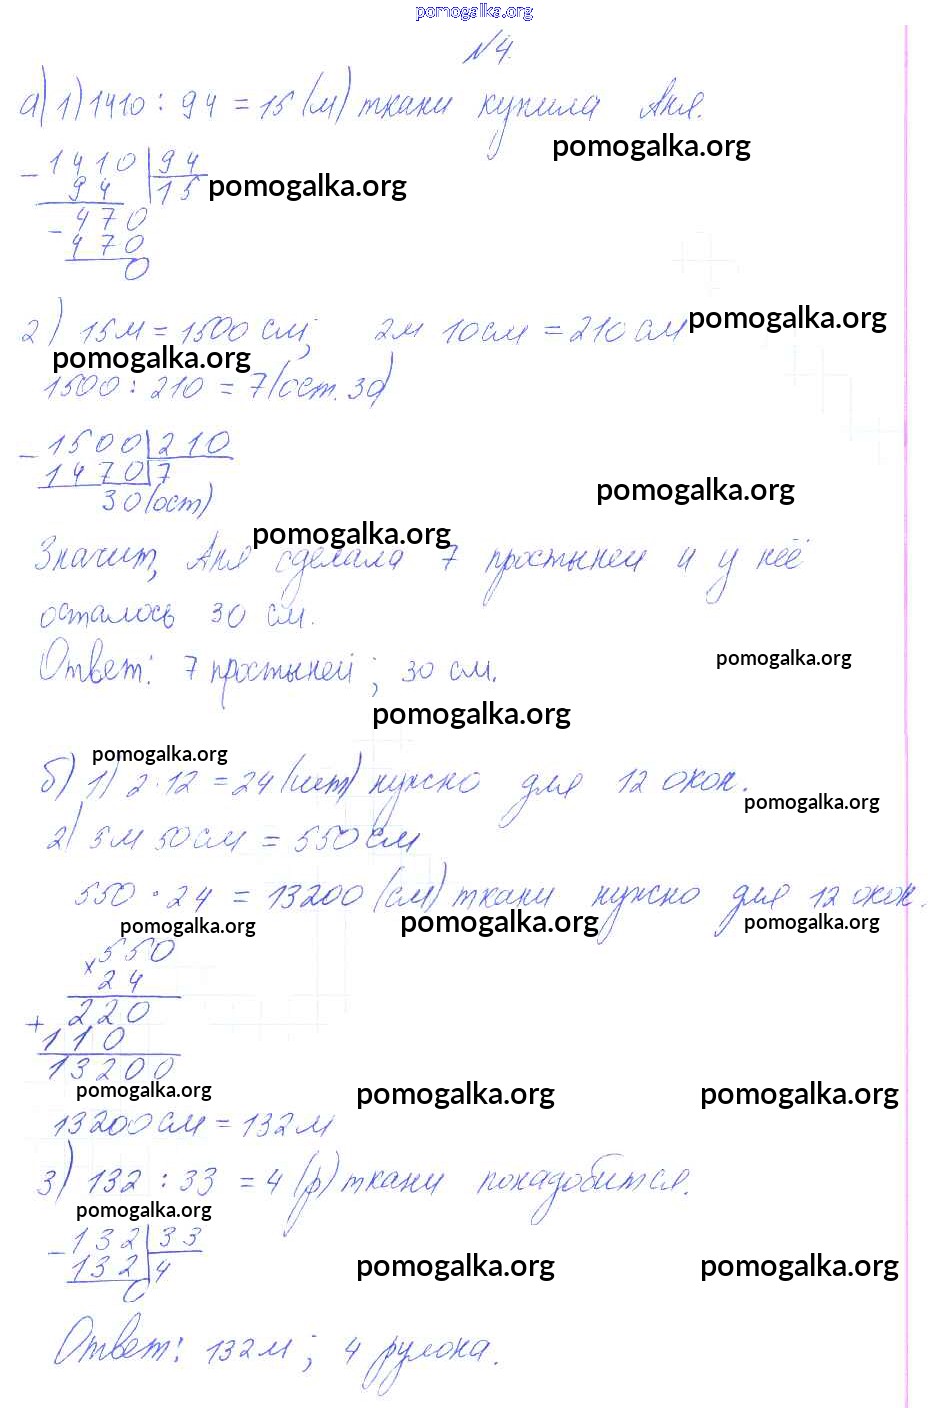 pomogalka.org
№4.
а) 1) 1410 : 94 = 15 (м) ткани купила Аня.
pomogalka.org
- 1410 | 94
94 | 15 pomogalka.org
- 470
470
0
pomogalka.org
2) 15м = 1500 см; 2м 10см = 210 см
pomogalka.org
1500 : 210 = 7 (ост. 30)
- 1500 | 210
1470 | 7
30 (ост)
pomogalka.org
pomogalka.org
Значит, Аня сделала 7 простыней и у неё
осталось 30 см.
Ответ: 7 простыней; 30 см.
pomogalka.org
pomogalka.org
pomogalka.org
б) 1) 2 · 12 = 24 (шт) нужно для 12 окон.
pomogalka.org
2) 5м 50см = 550 см
550 · 24 = 13200 (см) ткани нужно для 12 окон.
pomogalka.org pomogalka.org pomogalka.org
× 550
24
+ 220
110
13200
pomogalka.org pomogalka.org pomogalka.org
13200 см = 132 м
3) 132 : 33 = 4 (р) ткани понадобится.
pomogalka.org
- 132 | 33
132 | 4
0
pomogalka.org pomogalka.org
Ответ: 132 м; 4 рулона.